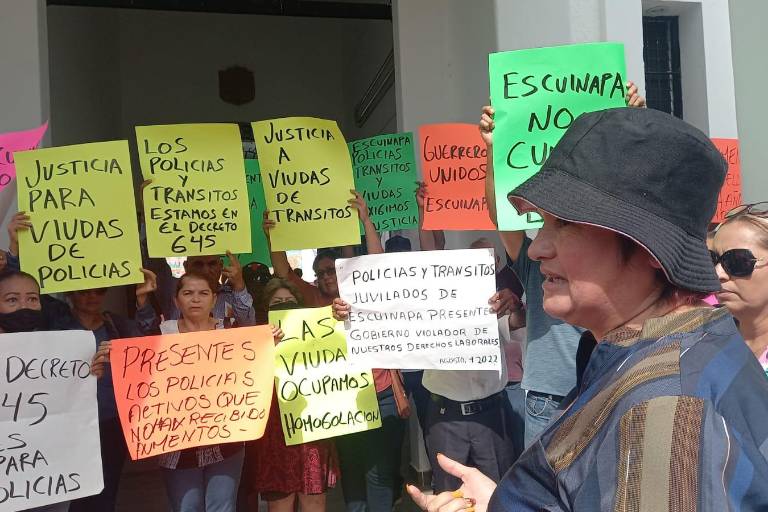 JUSTICIA
PARA
VIUDAS
DE
POLICIAS
LOS
POLICIAS
Y TRANSITOS
ESTAMOS EN EL
DECRETO
645
JUSTICIA
A
VIUDAS
DE
TRANSITOS
ESCUINAPA
POLICIAS
TRANSITOS
Y VIUDAS
EXIGIMOS
JUSTICIA
GUERRERO
UNIDOS
ESCUINAPA
ESCUINAPA
NO
CU
DECRETO
45
ES
PARA
POLICIAS
PRESENTES
LOS POLICIAS
ACTIVOS QUE
NO HAN RECIBIDO
AUMENTOS -
LAS
VIUDA
OCUPAMOS
HOMOGOLACION
POLICIAS Y TRANSITOS
JUVILADOS DE
ESCUINAPA PRESENTE
GOBIERNO VIOLADOR DE
NUESTROS DERECHOS LABORALES
AGOSTO, 1 2022